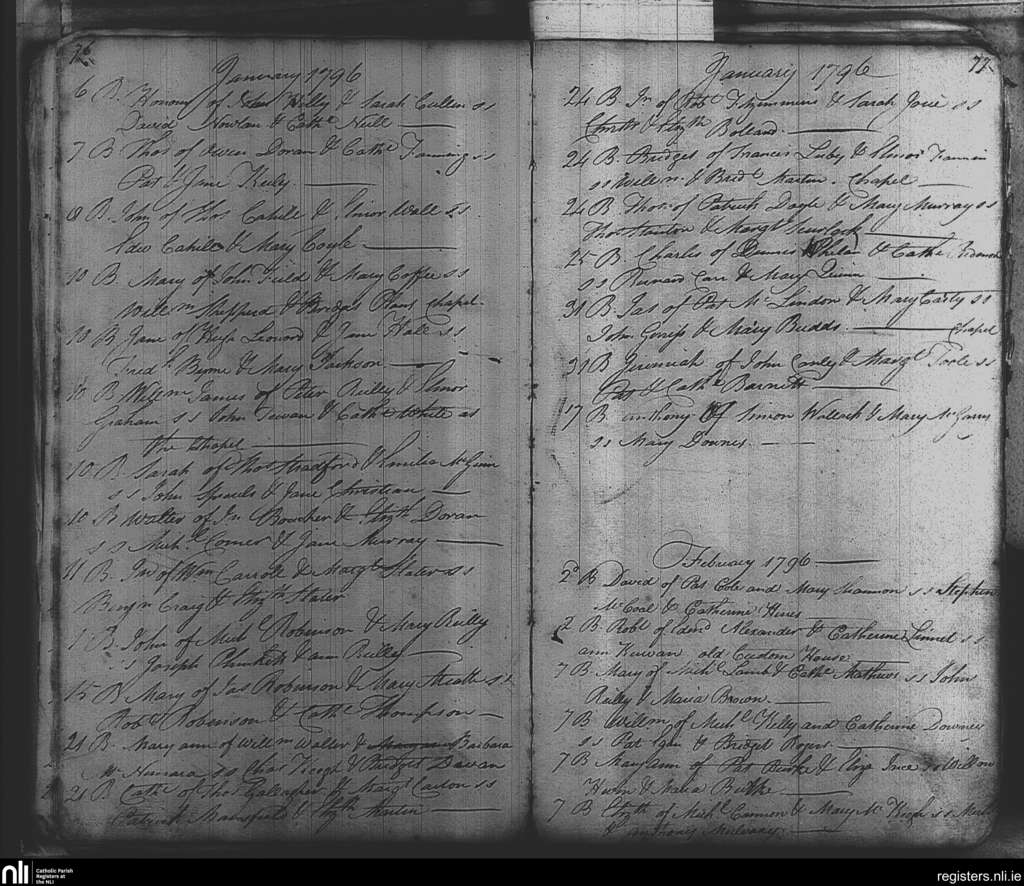 76
January 1796
6 B. Honour of John Kelly & Sarah Cullen ss
David Nowlan & Cathe Neill
7 B Thos of Owen Doran & Cathe Fanning ss
Pat & Jane Kiely.
8 B. John of Thos Cahill & Elinor Wall ss.
Edw Cahill & Mary Coyle
10 B. Mary of John Field & Mary Coffee ss
Willm Shepperd & Bridget chapel.
10 B Jane of Hugh Leonard & Jane Hall ss
Fredk Byrne & Mary Jackson
10 B Willm James of Peter Reilly & Elinor
Graham ss John & Cathe White as
the Chapel
10. B. Sarah of Thos Stradford & Emilia McGuin
ss John & Jane Christian
10 B Walter of Jn Boucher & Elizth Doran
ss Michl Comer & Jane Murray
11 B. of Wm Carroll & Margt Slater ss
Benjn Craig & Elizth Slater
1 B. John of Michl Robinson & Mary Reilly
ss Joseph Plunkett & ann Reilly
15 B Mary of Jas Robinson & Mary ss
Robt Robinson & Cathe Thompson
21 B. Mary ann of Willm Walter & Barbara
McNamara ss Chas & Bridget Davan
21 B Cathe of Thos Gallagher & Margt Carlon ss
Patrick Mansfield & Elizth Martin
77
January 1796
24 B. Jn of Robt Fimmins & Sarah ss
& Elizth Bolland.
24 B. Bridget of Francis Luby & Elinor
ss Willm & Bridt Martin. Chapel
24 B Thos. of Patrick Doyle & Mary Murray ss
Thos & Margt
25 B. Charles of Dennis Whelan & Cathe
ss Bernard Carr & Mary Quinn
31 B Jas of Pat McLindon & Mary Carty ss
John & Mary Budds. Chapel
31 B Jeremiah of John Conly & Margt Toole ss
Pat & Cathe Barnett
17 B anthony of Simon Wallack & Mary McGarry
ss Mary Downes.
February 1796
2 B David of Pat Cole and Mary Shannon ss Stephen
McCoal & Catherine Hines
2 B Robt of Edwd Alexander & Catherine Linnet ss
ann Kirwan old Custom House
7 B Mary of Michl Lamb & Cathe Mathews ss John
Reilly & Maria Brown.
7 B Willm of Michl Kelly and Catherine Downes
ss Pat Egan & Bridget Rogers.
7 B Mary ann of Pat Burke & Eliza ss William
& Maria Burke
7 B Elizth of Michl Cannon & Mary McHugh ss Michl
& anthony Mulvany
nli
Catholic Parish
Registers at
the NLI
registers.nli.ie